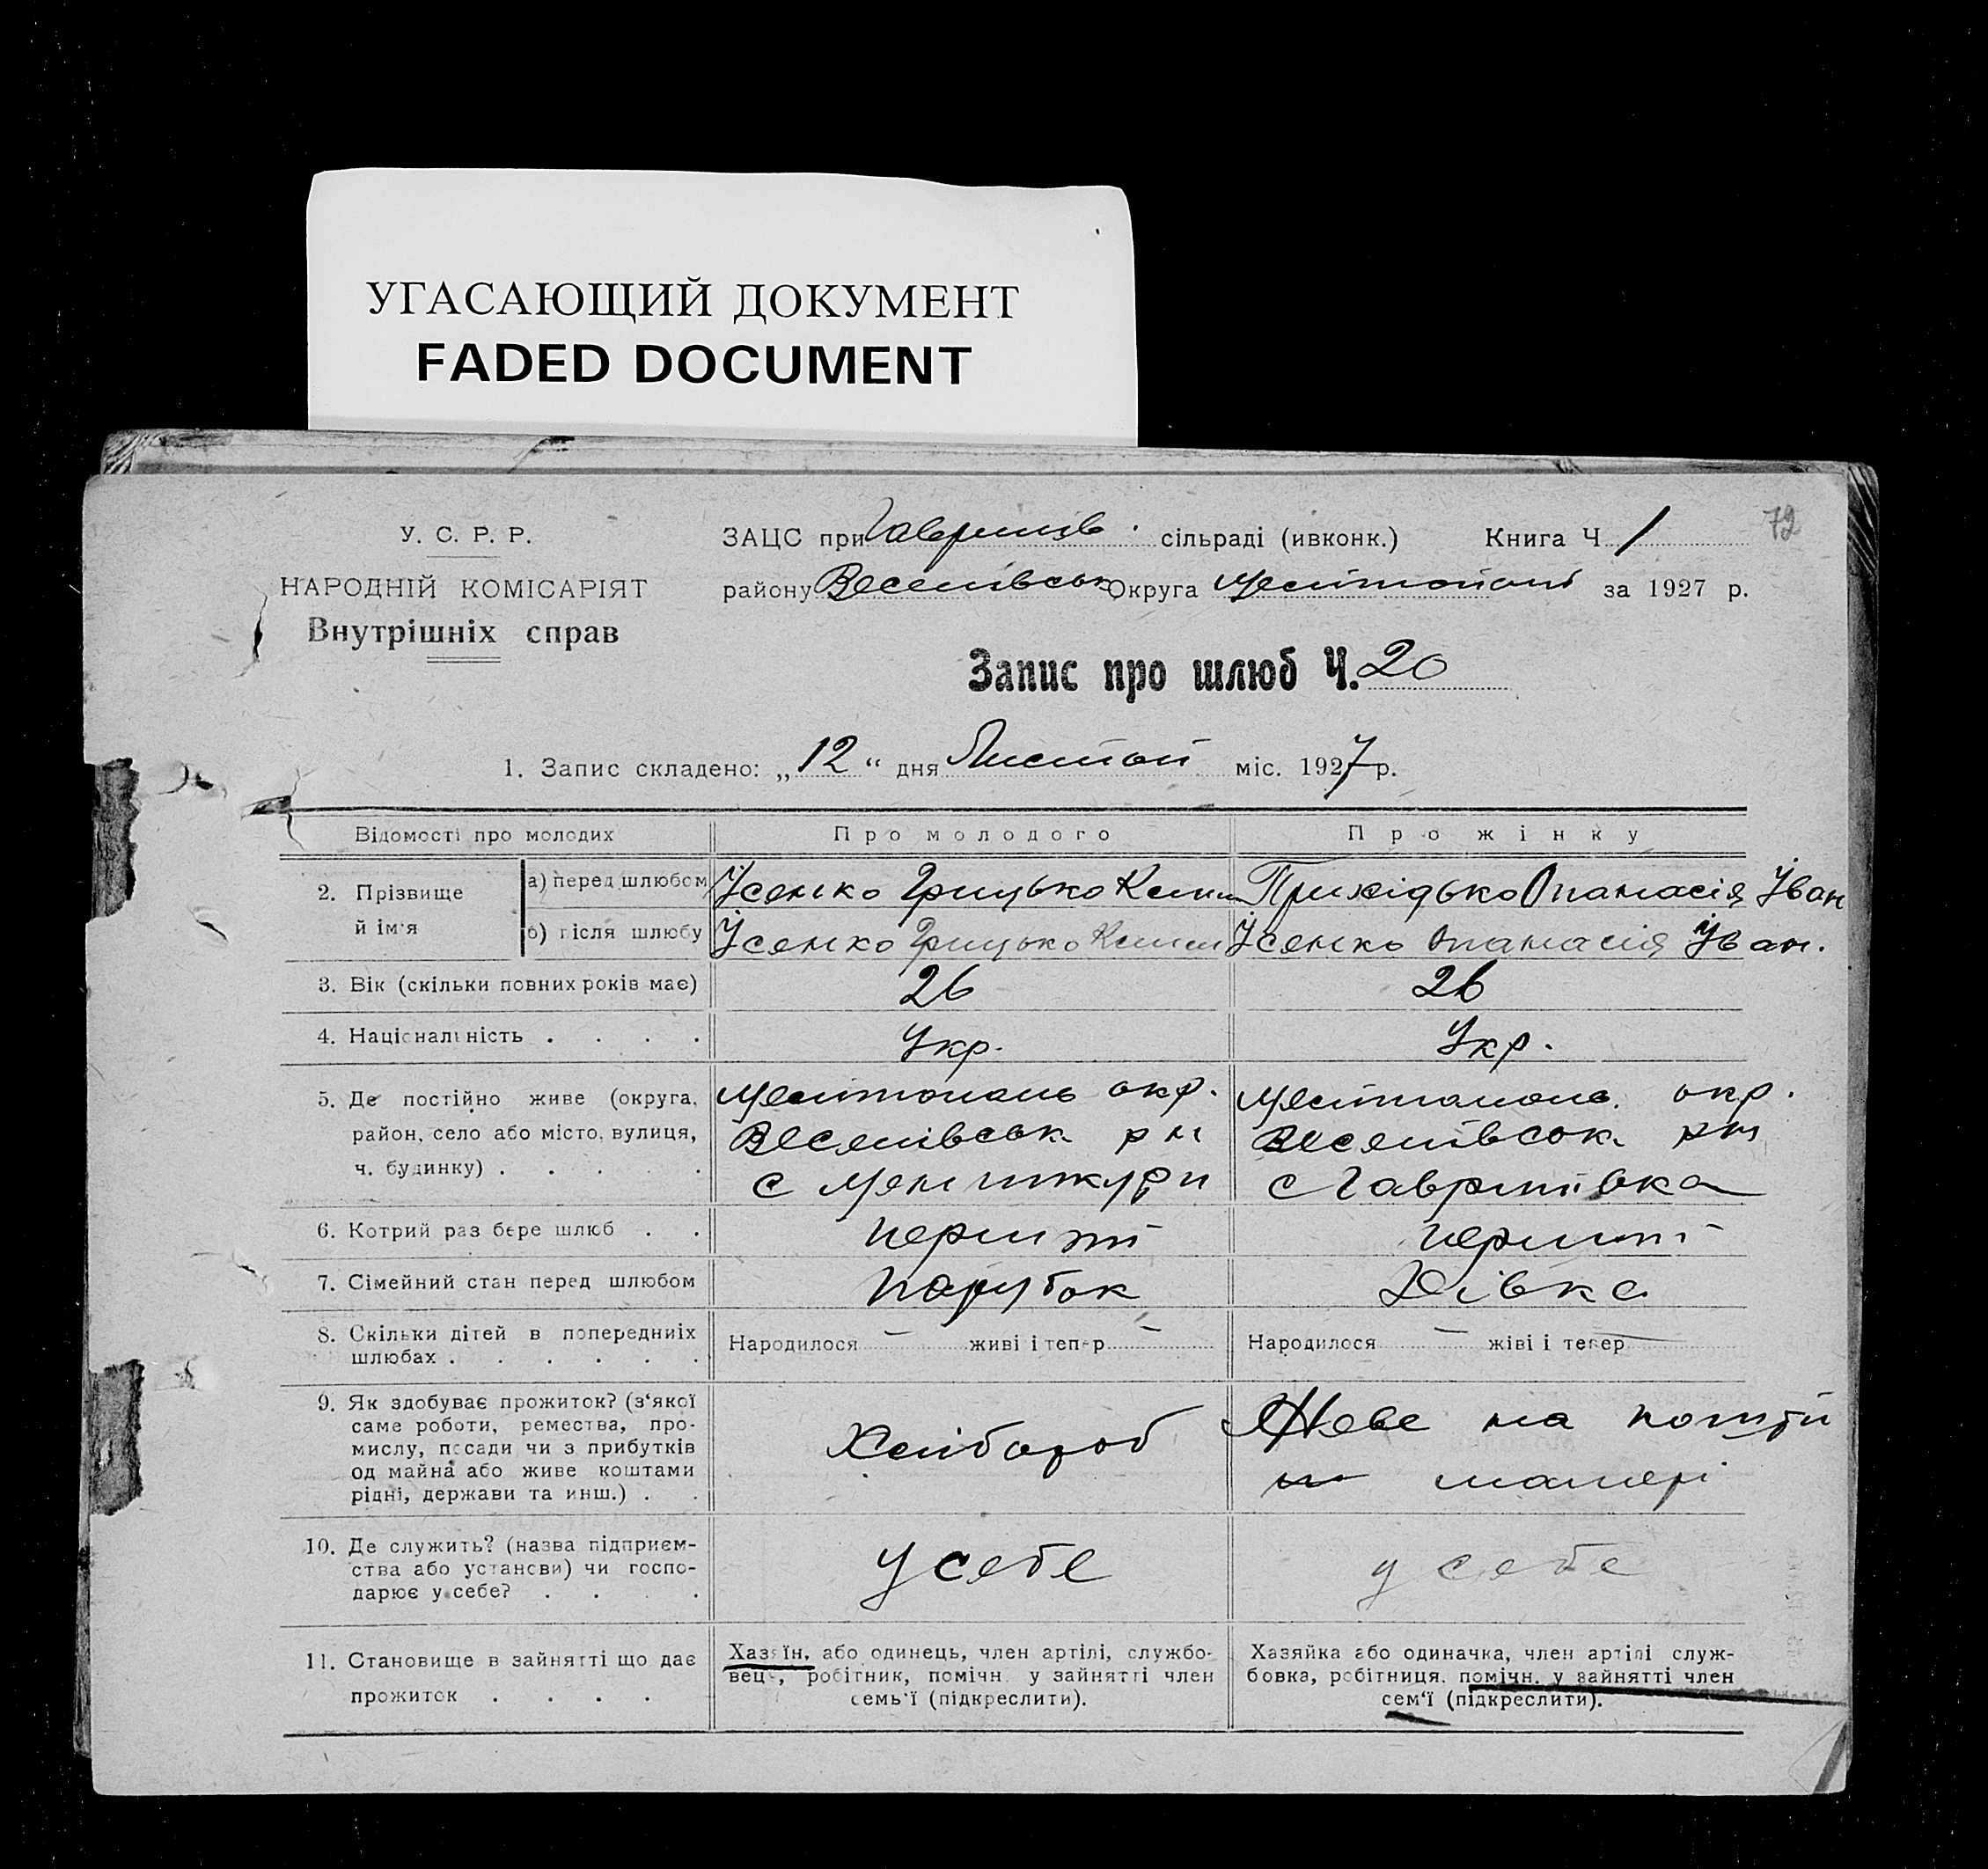 УГАСАЮЩИЙ ДОКУМЕНТ
FADED DOCUMENT
72
У. С. Р. Р.
НАРОДНІЙ КОМІСАРІЯТ
Внутрішніх справ
ЗАЦС при сільраді (ивконк.) Книга Ч 1
району Веселівськ Округа за 1927 р.
Запис про шлюб Ч. 20
1. Запис складено: „12“ дня Листоп міс. 1927 р.
Відомості про молодих Про молодого Про жінку
2. Прізвище й ім'я
а) перед шлюбом Усенко Грицько Прихідько Опанасія Іван
б) після шлюбу Усенко Грицько Усенко Опанасія Іван.
3. Вік (скільки повних років має) 26 26
4. Національність . . . . Укр. Укр.
5. Де постійно живе (округа, Мелітополь окр. Мелітополь. окр.
район, село або місто, вулиця, Веселівськ рн Веселівськ рн
ч. будинку) . . . . . с Менчикури с Гаврилівка
6. Котрий раз бере шлюб . . перший перший
7. Сімейний стан перед шлюбом парубок Дівка
8. Скільки дітей в попередниіх Народилося — живі і тепер — Народилося — жіві і тепер —
шлюбах . . . . . .
9. Як здобуває прожиток? (з‘якої
саме роботи, ремества, про-
мислу, посади чи з прибутків
од майна або живе коштами
рідні, держави та инш.) . .
Хлібороб
Живе на кошти
матері
10. Де служить? (назва підприєм-
ства або установи) чи госпо-
дарює у себе? . . . .
у себе у себе
11. Становище в зайнятті що дає
прожиток . . . .
Хазяїн, або одинець, член артілі, службо-
вець, робітник, помічн. у зайнятті член
семь‘ї (підкреслити).
Хазяйка або одиначка, член артілі служ-
бовка, робітниця, помічн. у зайнятті член
сем‘ї (підкреслити).